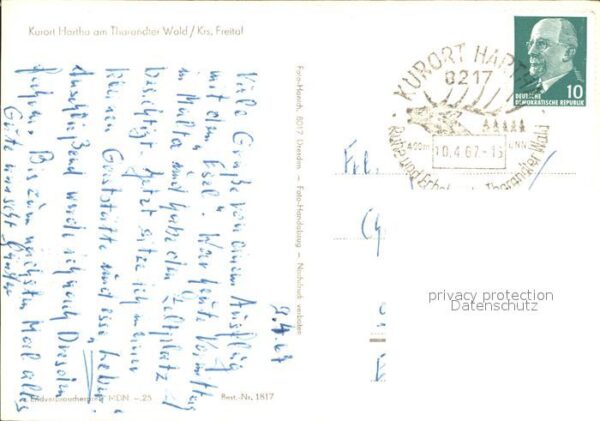 Kurort Hartha am Tharandter Wald / Krs. Freital
9.4.67
Viele Grüße von einem Ausflug
mit dem "Esel". War heute Vormittag
in Malta und habe den Zeltplatz
besichtigt. Jetzt sitze ich in einer
kleinen Gaststätte und esse Leber.
Anschließend werde ich nach Dresden
fahren. Bis zum nächsten Mal alles
Gute wünscht Günter
Endverbraucherpreis MDN -.25
Best.-Nr. 1817
Foto-Harich, 8017 Dresden – Foto-Handabzug – Nachdruck verboten
KURORT HARTHA
8217
400m
ü.NN
10.4.67-15
Ruhe und Tharandter Wald
DEUTSCHE
DEMOKRATISCHE REPUBLIK
10
Frl.
privacy protection
Datenschutz